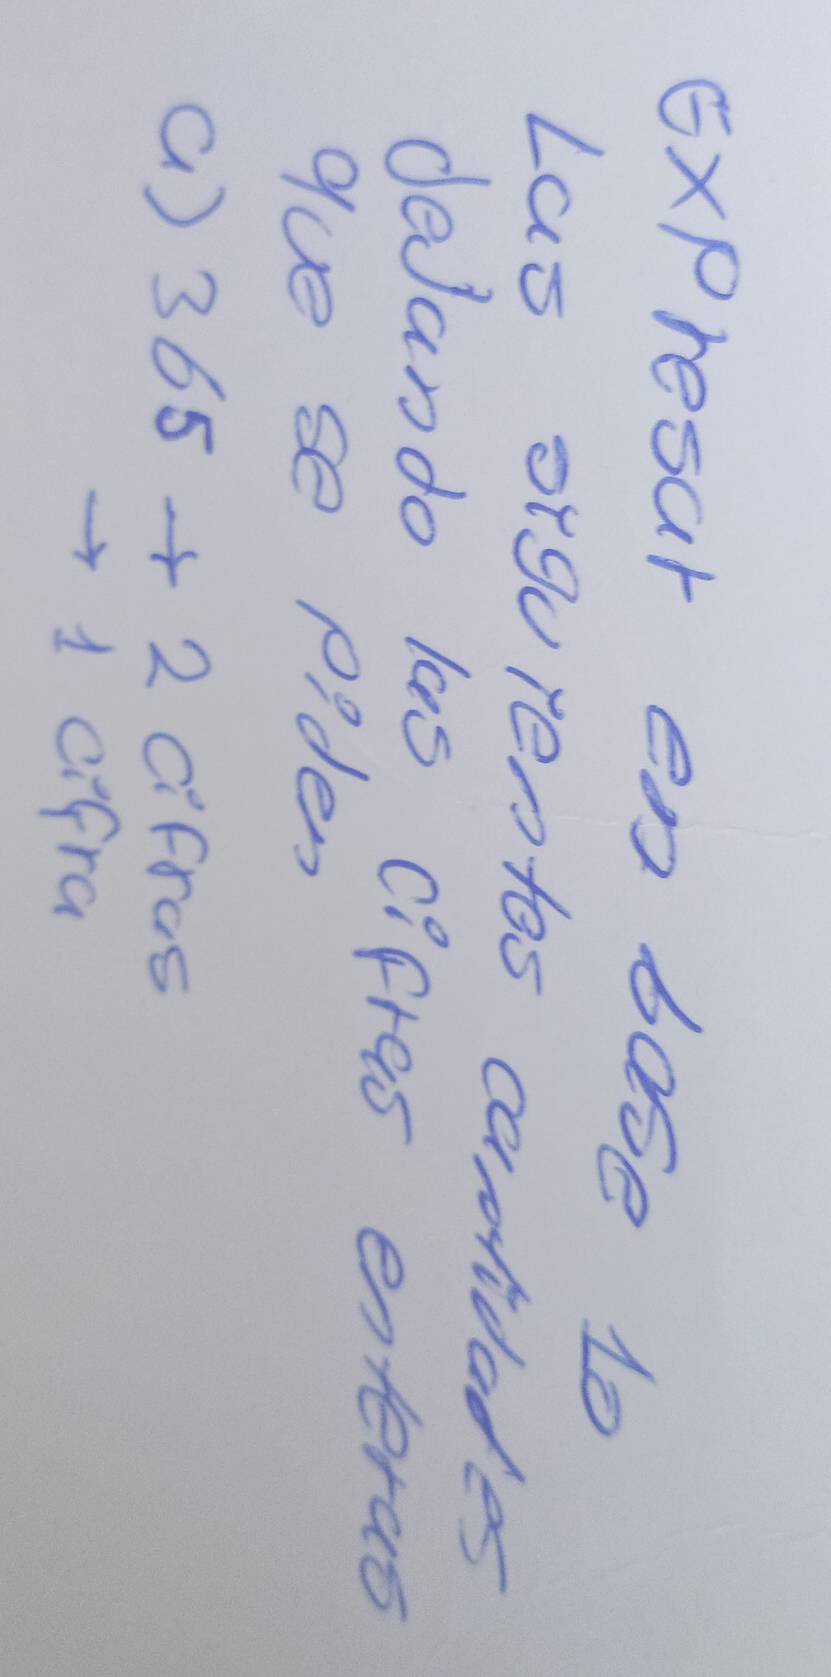 Expresar en base 10
Las siguientes cantidades
dejando las cifras enteras
que se piden
a) 365 → 2 cifras
→ 1 cifra